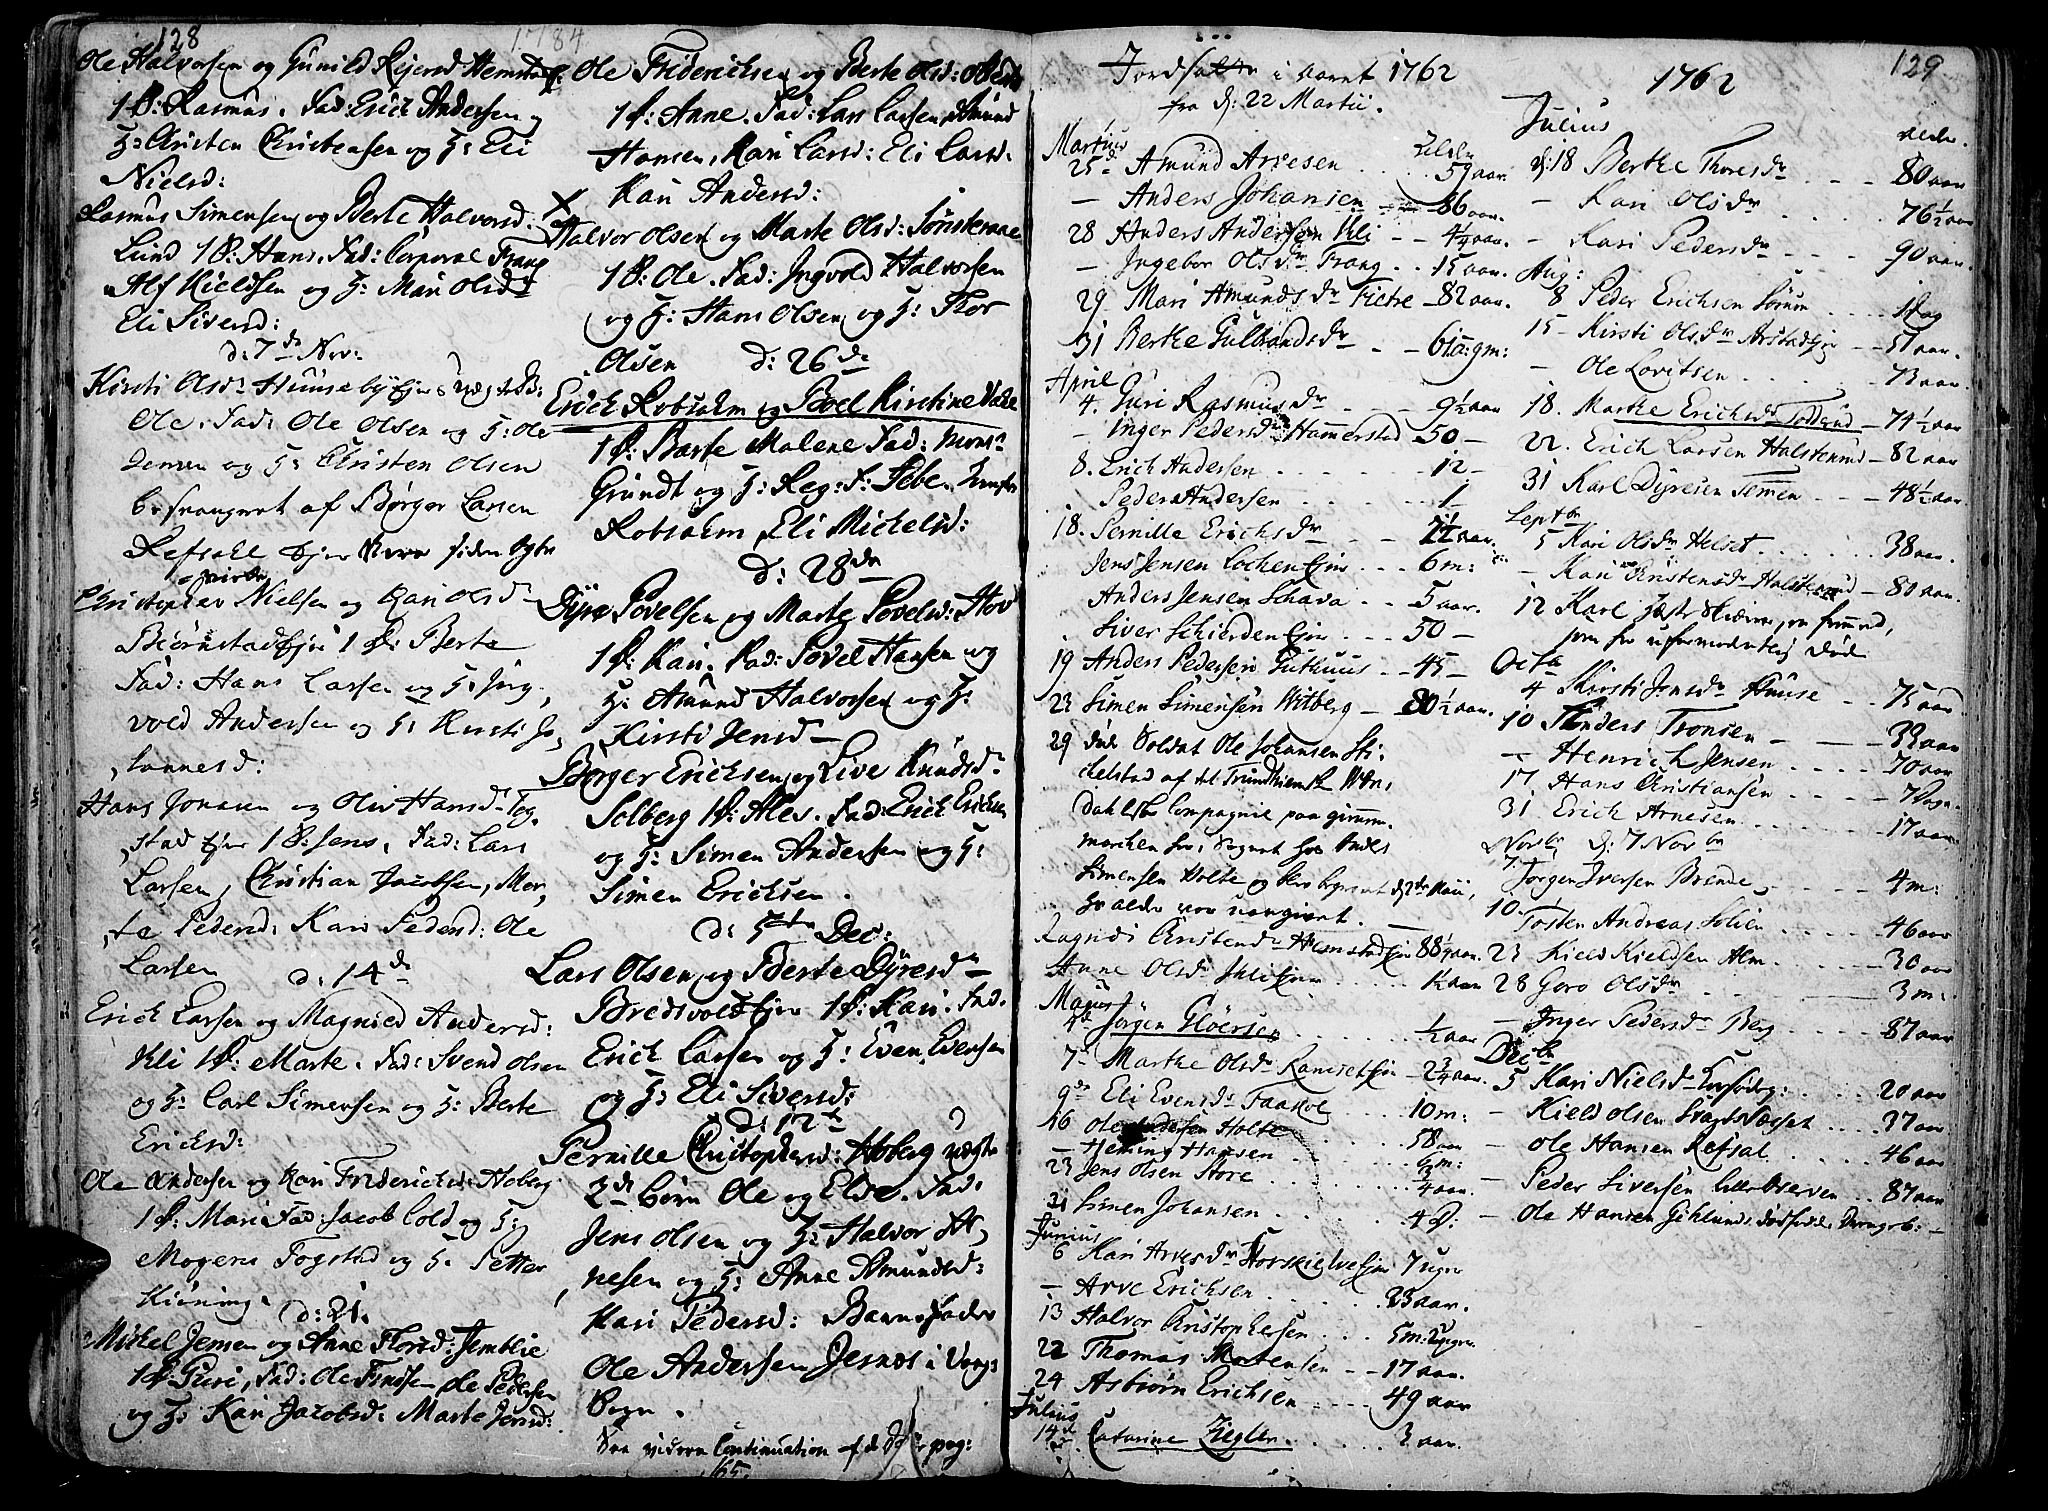 128
1784
Ole Halvorsen og Gunild Rejersd Hemstad
1 B: Rasmus. Fad: Erich Andersen og
H: Christen Christensen og H: Eli
Nielsd:
Rasmus Simensen og Berte Halvorsd:
Lund 1 B: Hans. Fad: Corporal Frang
Alf Kieldsen og H: Mari Olsd
Eli Siversd:
d: 7de Nov:
Kirsti Olsdr Huusebyejer
Ole. Fad: Ole Olsen og H: Ole
Jensen og H: Christen Olsen
besvangret af Børger Larsen
Refsahl
Christopher Nielsen og Kari Olsd
Biørnstadejer 1 B: Berte
Fad: Hans Larsen og H: Ing,
vold Andersen og H: Kirsti Jo,
hannesd:
Hans Jonasen og Oliv Hansd Tog,
stad ejer 1 B: Jens. Fad: Lars
Larsen, Christian Jacobsen, Mar,
te Pedersd: Kari Pedersd: Ole
Larsen d: 14de
Erich Larsen og Magnild Andersd:
Kli 1 B: Marte. Fad: Svend Olsen
og H: Carl Simensen og H: Berte
Ericksd:
Ole Andersen og Kari Friderichsd: Hoberg
1 B: Mari Fad: Jacob Cold og H:
Mogens Togstad og H: Petter
Kiøning.
d: 21.
Mikel Jensen og Anne Florsd: Jemblie
1 B: Guri, Fad: Ole Findsen Ole Pedersen
og H: Kari Jacobsd: Marte Jensd:
Ole Friderichsen og Berte Olsd:
1 B: Anne. Fad: Lars Larsen, Amund
Hansen, Kari Larsd: Eli Larsd:
Kari Andersd:
Halvor Olsen og Marte Olsd: Sønsteraae
1 B: Ole. Fad: Ingvold Halvorsen
og H: Hans Olsen og H: Thor
Olsen d: 26de
Erich Robsahm og Boel Kirstine Vahl
1 B: Barte Malene Fad: Monsr
Grundt og H: Reg: F: Sebe. Jomfr
Robsahm, Eli Michelsd:
d: 28de
Dyre Povelsen og Marte Povelsd: Hov
1 B: Kari. Fad: Povel Hansen og
H: Amund Halvorsen og H:
Kirsti Jensd
Børger Erichsen og Live Knudsd
Solberg 1 B: Ales. Fad: Erich Ericksen
og H: Simen Andersen og H:
Simen Ericksen.
d: 5te Dec:
Lars Olsen og Berte Dyresd
Bredsvold Ejer 1 B: Kari. Fad:
Erich Larsen og H: Even Evensen
og H: Eli Siversd:
d: 12te
Pernille Christophersd: Hoberg
2de børn Ole og Elde. Fad:
Jens Olsen og H: Halvor Ar,
nesen og H: Anne Amundsd:
Kari Pedersd: Barnefader
Ole Andersen Jesnæs i Vang
Sogn.
See videre Continuation af d pag:
165
Jordfæstn i aaret 1762
fra d: 22 Martii.
Martius alder
25 Amund Arvesen . . . . 59 aar.
— Anders Johansen — 86 aar.
28 Anders Andersen Kli — 4 1/4 aar.
— Ingebor Olsdr Frang . . 15 aar.
29 Mari Amundsdr Fietre — 82 aar.
31 Berthe Gulbrandsdr — 6 a: 9 m:
April
4. Guri Rasmusdr — 9 1/2 aar
— Inger Pedersdr Hammerstad 50 —
8. Erich Andersen . . . . 12 —
Peder Andersen . . . . 1 —
18. Pernille Erichsdr — 7 1/2 aar.
Jens Jensen Lochen Ejer . . 6 m:
Anders Jensen Schava . . 5 aar.
Siver Schierden Ejer . . 50 —
19 Anders Pedersen Guthuus . . 45 —
23 Simen Simensen Witberg — 80 1/2 aar.
29 død Soldat Ole Johansen Sti,
chelstad af det Trundhiemske
Dahlske Compagnie paa gimm,
marchen her, Sognet hos Anders
Simensen Holte og blev begravet d. 2de Maii,
hs alder var uangivet. —
Ragndi Christensdr Hemstad Ejer 88 1/2 aar.
Anne Olsdr Ejer . . . 1/2 aar
Majus
4de Jörgen Glöersen . . . . 1/2 aar
7 Marthe Olsdr Ramset Ejer — 2 3/4 aar.
9de Eli Evensdr Faakol . . . 10 m:
16 Ole Andersen Holte . . . 58 aar
— Heming Hansen . . . . 6 m:
23 Jens Olsen Støre . . . . 3/4 aar.
31 Simen Johansen . . . . 4 D:
Junius
6 Kari Arvesdr Horskielve Ejer 7 uger
— Arve Erichsen . . . . 23 aar.
13 Halvor Christophersen . . . 5 m: 2 uger
22 Thomas Mortensen — 17 aar.
24 Asbiørn Erichsen — 49 aar
Julius
14de Catarina Ziegler . . . . 3 aar.
129
1762
Julius alder.
d: 18 Berthe Thoresdr . . . — 80 aar
— Kari Olsdr . . . . 76 1/2 aar
— Kari Pedersdr . . . . 90 aar.
Aug:
8 Peder Erichsen Sørum . . . . 1 dag
15 — Kirsti Olsdr Arstad Ejer — 51 aar.
— Ole Lovitsen . . . . 73 aar.
18. Marthe Erichsdr Soelund — 74 1/2 aar
22. Erich Larsen Halsteinrud — 82 aar
31 Karl Dyresen Temen . . — 48 1/2 aar.
Septbr
5 Kari Olsdr Helset . . . . 38 aar.
— Kari Christensdr Halsteinrud — 80 aar.
12 Karl en fremmed,
som her uformodentlig døde
Octbr
4 Kirsti Jensdr Huuse . . . 75 aar
10 Anders Tronsen — — 33 aar
— Henrich Jensen . . . . 70 aar
17 Hans Christiansen . . . 7 Dage
31 Erich Arnesen . . . . 17 aar
Novbr d: 7 Novbr
7 Jörgen Iversen Brende . . 4 m:
10. Tosten Andreas Solien . . . 46 aar
23 Kield Kieldsen Alm . . . 30 aar
28 Goro Olsdr — 3 m:
— Inger Pedersdr Berg . . . 87 aar
Decbr
5 Kari Nielsdr . . . 20 aar
— Kield Olsen Svartvæsset . . . 37 aar
— Ole Hansen Refsal . . . . 46 aar
— Peder Siversen . . 87 aar
— Ole Hansen